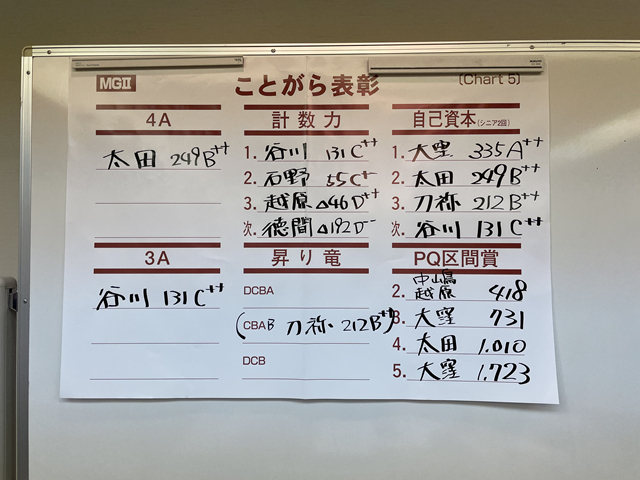 MGⅡ
ことがら表彰
(Chart 5)
4A
太田 249B++
3A
谷川 131C++
計数力
1. 谷川 131C++
2. 石野 55C+
3. 越原 △46D++
次. 徳間 △192D-
昇り竜
DCBA
(CBAB 刀祢 212B++)
DCB
自己資本(シニア2回)
1. 大窪 335A++
2. 太田 249B++
3. 刀祢 212B++
次. 谷川 131C++
PQ区間賞
中山嶌
2. 越原 418
3. 大窪 731
4. 太田 1.010
5. 大窪 1.723